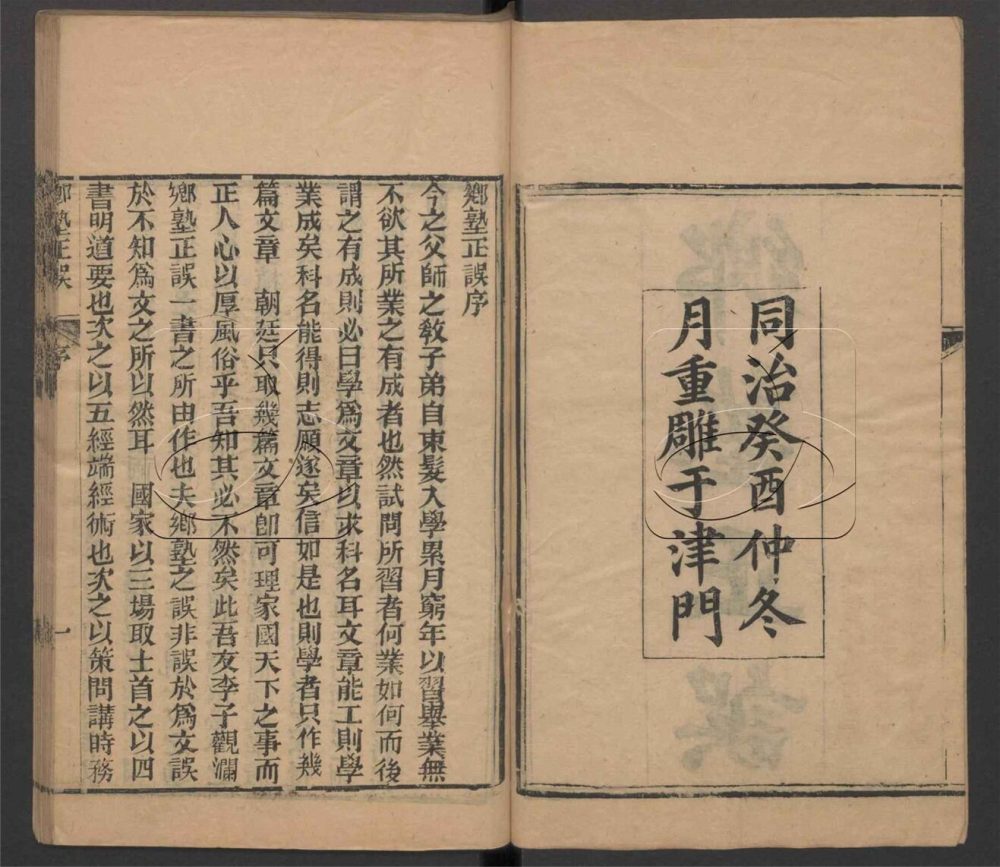 同治癸酉仲冬
月重雕于津門
鄉塾正誤序
今之父師之敎子弟自束髮入學累月窮年以習舉業無
不欲其所業之有成者也然試問所習者何業如何而後
謂之有成則必曰學爲文章以求科名耳文章能工則學
業成矣科名能得則志願遂矣信如是也則學者只作幾
篇文章　朝廷只取幾篇文章卽可理家國天下之事而
正人心以厚風俗乎吾知其必不然矣此吾友李子觀瀾
鄉塾正誤一書之所由作也夫鄉塾之誤非誤於爲文誤
於不知爲文之所以然耳　國家以三場取士首之以四
書明道要也次之以五經端經術也次之以策問講時務
鄉塾正誤　序　一